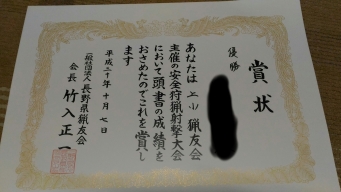 賞状
優勝
あなたは上小猟友会
主催の安全狩猟射撃大会
において頭書の成績を
おさめたのでこれを賞し
ます
平成三十年十月七日
一般社団法人長野県猟友会
会長竹入正一